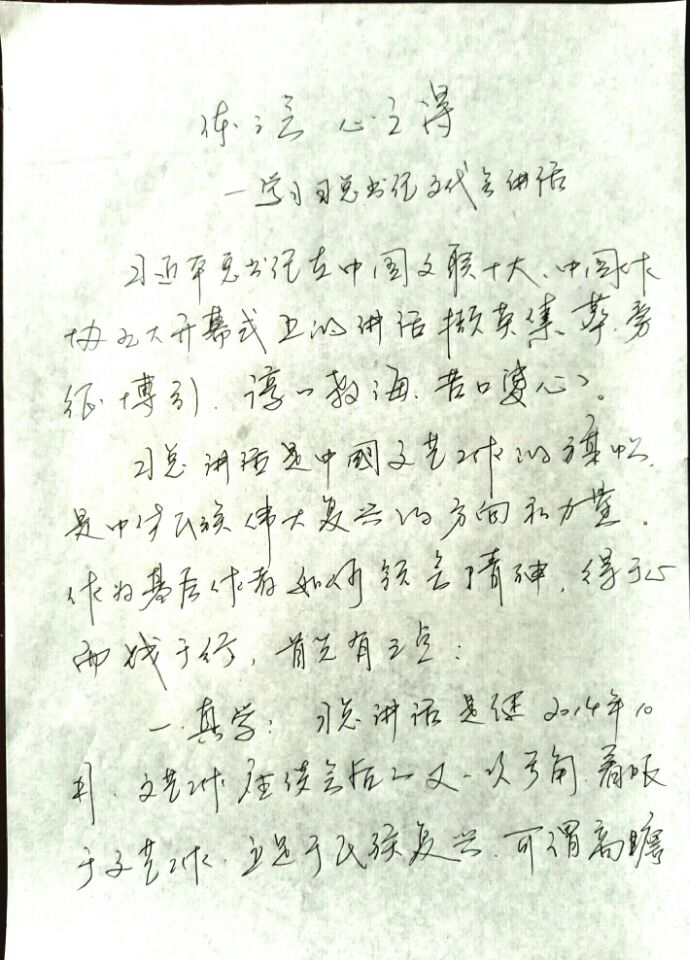 体会心得
一学习习总书记文代会讲话
习近平总书记在中国文联十大、中国作
协九大开幕式上的讲话撷英集萃、旁
征博引、谆々教海、苦口婆心。
习总讲话是中國文艺工作的旗帜、
是中华民族伟大复兴的方向和力量。
作为基层作者如何领会精神，得于心
而成于行，首先有三点：
一.真学：习总讲话是继2014年10
月、文艺工作座谈会后的又一次号角.着眼
于文艺工作、立足于民族复兴、可谓高瞻